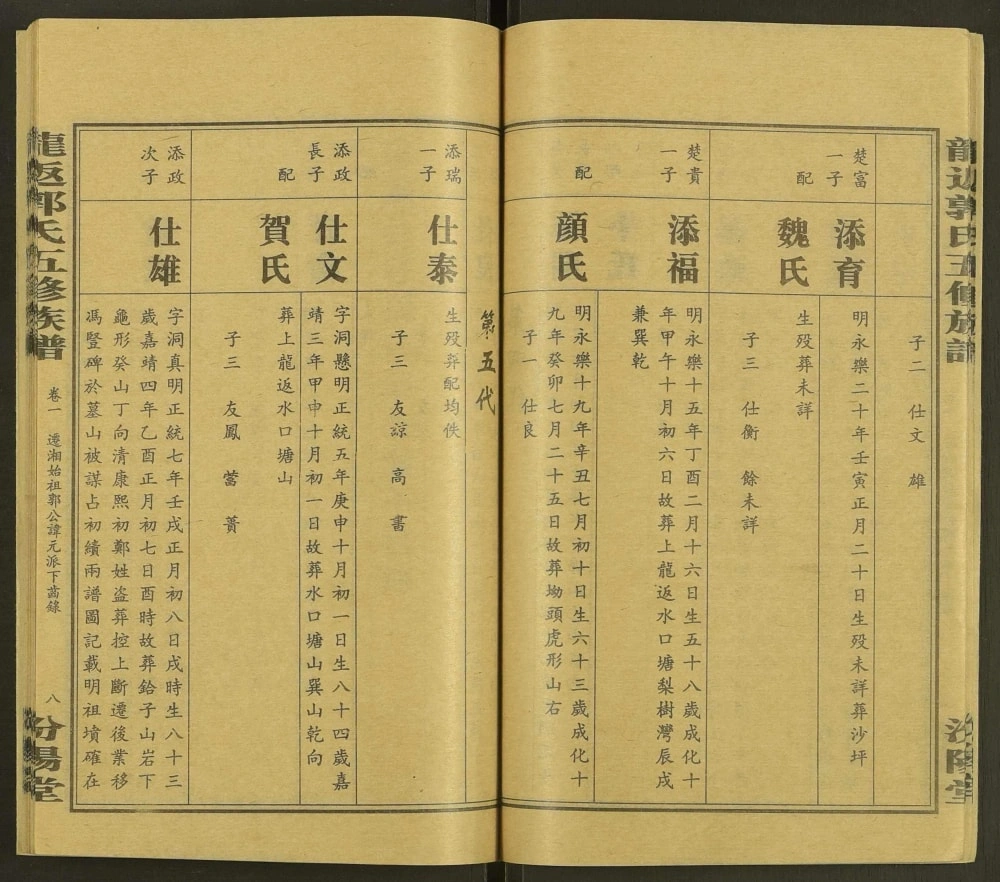 子二 仕文 雄
楚富
一子
添育
明永樂二十年壬寅正月二十日生歿未詳葬沙坪
配
魏氏
生歿葬未詳
子三 仕衡 餘未詳
楚貴
一子
添福
明永樂十五年丁酉二月十六日生五十八歲成化十
年甲午十月初六日故葬上龍返水口塘梨樹灣辰戌
兼巽乾
配
顏氏
明永樂十九年辛丑七月初十日生六十三歲成化十
九年癸卯七月二十五日故葬坳頭虎形山右
子一 仕良
第五代
添瑞
一子
仕泰
生歿葬配均佚
子三 友諒 高 書
添政
長子
仕文
字洞懸明正統五年庚申十月初一日生八十四歲嘉
靖三年甲申十月初一日故葬水口塘山巽山乾向
配
賀氏
葬上龍返水口塘山
子三 友鳳 蒿 蕢
添政
次子
仕雄
字洞真明正統七年壬戌正月初八日戌時生八十三
歲嘉靖四年乙酉正月初七日酉時故葬鉿子山岩下
龜形癸山丁向清康熙初鄭姓盜葬控上斷遷後業移
馮豎碑於墓山被謀占初續兩譜圖記載明祖墳確在
龍返郭氏五修族譜
卷一 遷湘始祖郭公諱元派下齒錄
八
汾陽堂